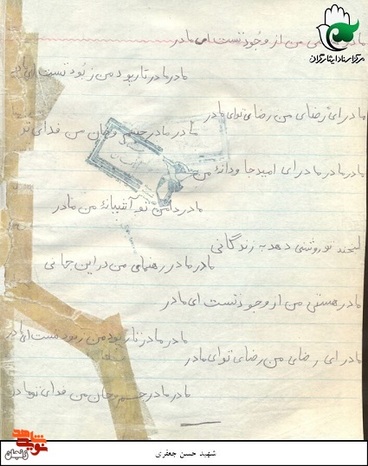 مرکز اسناد ایثارگران
مادر هستی من از وجود تست ای مادر
مادر مادر تار و پود من ز بود تست ای
مادر ای رضای من رضای توای مادر
مادر مادر جسم و جان من فدای تو
مادر مادر مادر ای امید جاودانهٔ من
مادر دامن تو آشیانهٔ من مادر
لبخند تو روشنی دهد به زندگانی
مادر مادر رهنمای من در این
مادر هستی من از وجود تست ای مادر
مادر مادر تار و پود من ز بود تست ای مادر
مادر ای رضای من رضای توای مادر
مادر مادر جسم و جان من فدای تو مادر
نوید شاهد
زنجان
شهید حسن جعفری